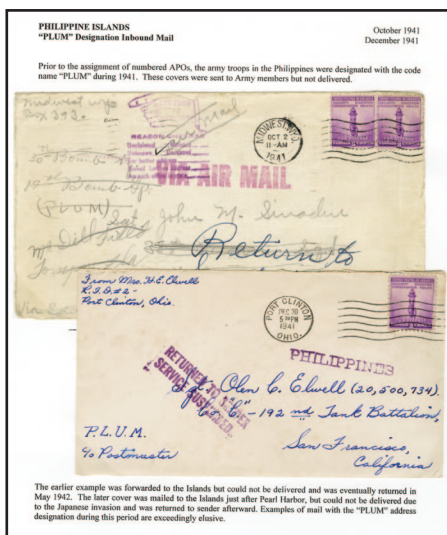 PHILIPPINE ISLANDS
"PLUM" Designation Inbound Mail
October 1941
December 1941
Prior to the assignment of numbered APOs, the army troops in the Philippines were designated with the code
name "PLUM" during 1941. These covers were sent to Army members but not delivered.
Midwest Wyo
Box 393
MIDWEST, WYO.
OCT 2
11-AM
1941
REASON
VIA AIR MAIL
(PLUM)
Sgt. John M.
Return to
From Mrs. H. E. Elwell
R.F.D. #2-
Port Clinton, Ohio.
PORT CLINTON
5 PM
1941
OHIO.
RETURNED TO SENDER
SERVICE SUSPENDED
PHILIPPINES
Sgt. Olen C. Elwell (20,500,734)
Co. "C" - 192nd Tank Battalion,
P.L.U.M.
c/o Postmaster
San Francisco,
California
The earlier example was forwarded to the Islands but could not be delivered and was eventually returned in
May 1942. The later cover was mailed to the Islands just after Pearl Harbor, but could not be delivered due
to the Japanese invasion and was returned to sender afterward. Examples of mail with the "PLUM" address
designation during this period are exceedingly elusive.